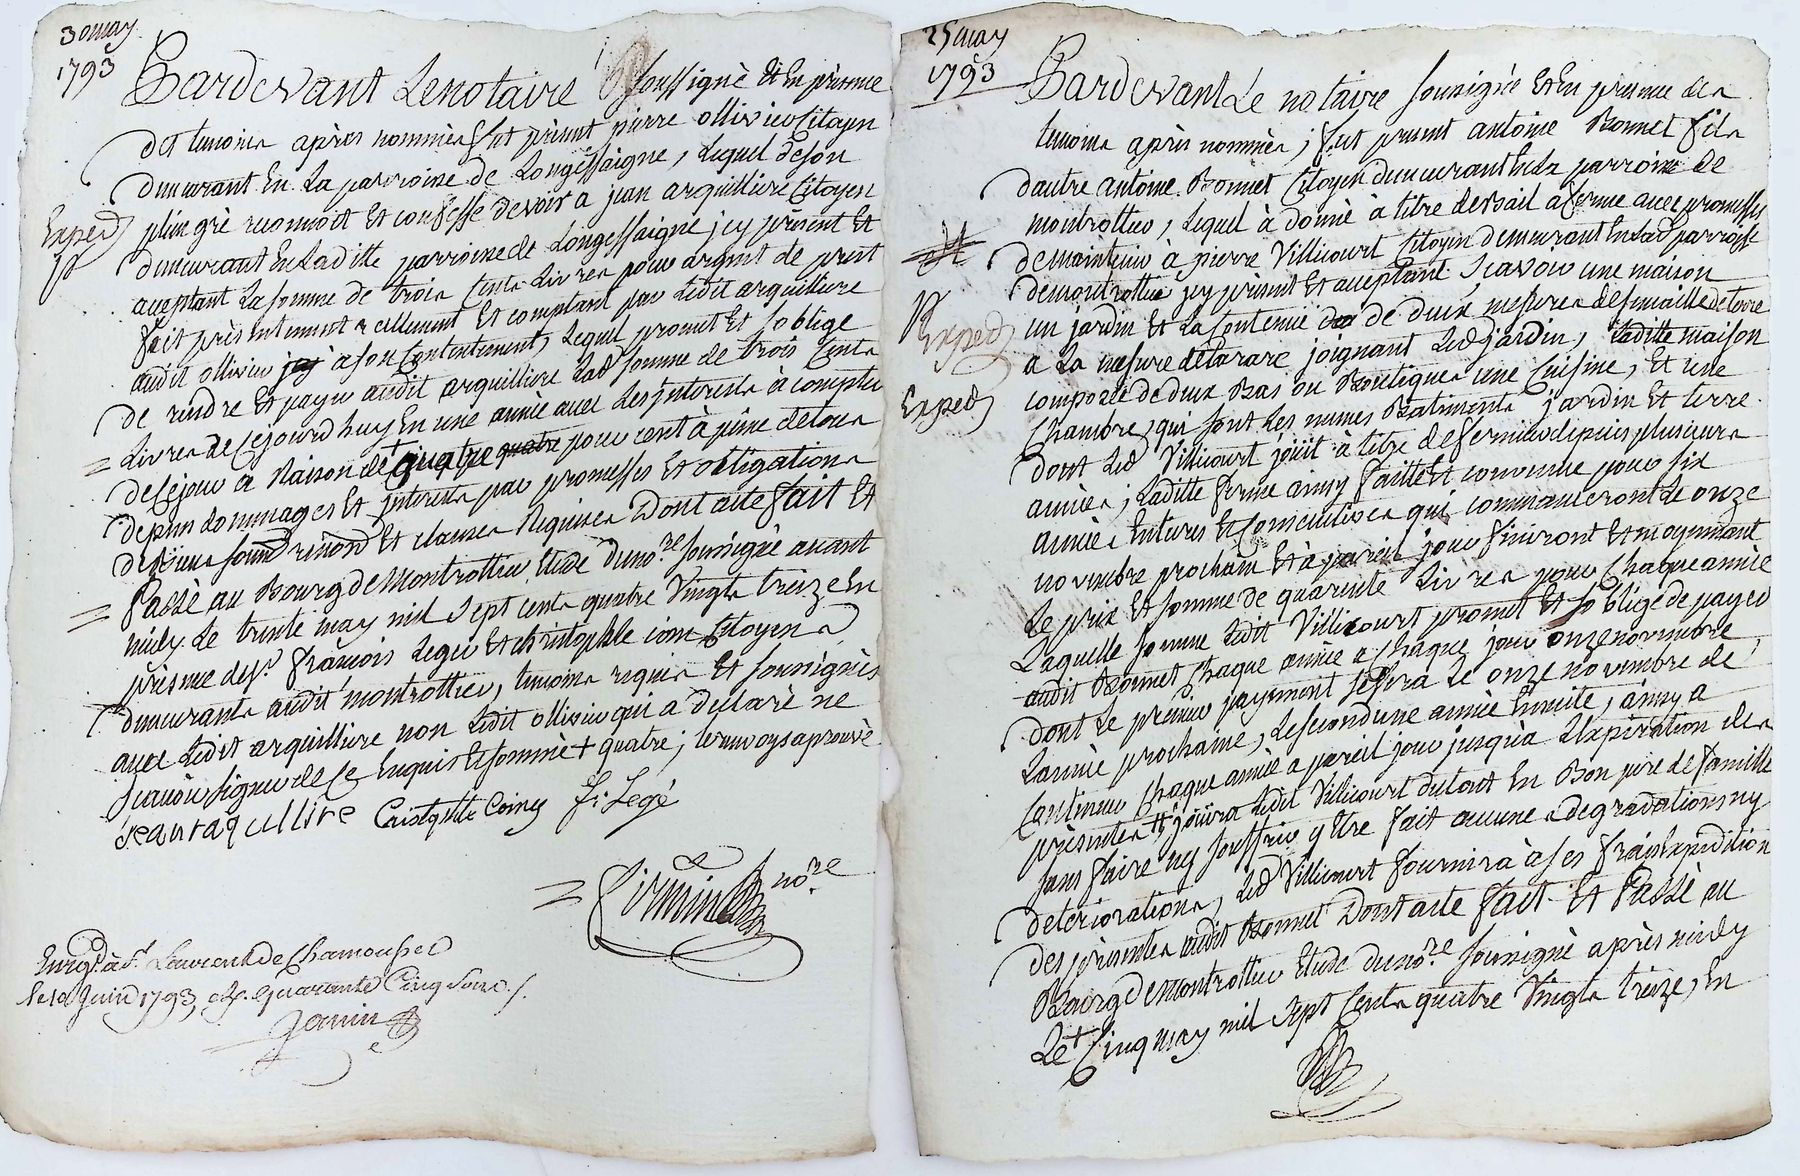 30 may
1793
Pardevant Le notaire soussigné Et En présence
des temoins après nommés fut présent pierre ollivier Citoyen
demeurant En La parroisse de Longessaigne, Lequel de son
plein gré reconnoit Et confesse devoir a jean arquilliere Citoyen
Exped
demeurant En Laditte parroisse de Longessaigne jcy présent Et
aceptant La somme de trois Cents Livres pour argent de prest
fait présentement réellement Et comptant par Ledit arquilliere
audit ollivier a son Contentement, Lequel promet Et soblige
de rendre Et payer audit arquilliere Lad somme de trois Cents
Livres de Cejourdhuy En une année avec Les jnterests à compter
de Cejour a Raison de quatre quatre pour cent à peine de tous
depens dommages Et jnterests par promesses Et obligations
de biens soum renonc Et clauses Requises Dont acte fait Et
Passé au Bourg de Montrottier Etude du nore soussigné avant
midy Le trente may mil Sept cents quatre Vingts treize En
présence de sr françois Leger Et christophle coin Citoyens
demeurants audit montrottier, temoins requis Et soussignés
avec Ledit arquilliere non Ledit ollivier qui a declaré ne
scavoir signer de Ce Enquis Et sommé + quatre; renvoy aprouvé
jean raqullire Cristophle Coing fr Legé
nore
Enregt. à St. Laurent de Chamousset
le 10 juin 1793, R. quarante Cinq sous
Janin
25 may
1793
Pardevant Le notaire soussigné Et En présence des
temoins après nommés; fut présent antoine Bonnet fils
dautre antoine Bonnet Citoyen demeurant En La parroisse de
montrottier, Lequel à donné à titre de Bail a ferme avec promesses
de maintenir à pierre Villicourt Citoyen demeurant En Lad parroisse
de montrottier jcy présent Et aceptant Scavoir une maison
un jardin Et La Contenue de deux mesures de semaille de terre
Exped
a La mesure de Tarare joignant Led jardin, Laditte maison
Exped
composée de deux Bas ou Boutiques une Cuisine, Et une
Chambre, qui sont Les mêmes Batiments jardin Et terre
dont Led Villicourt jouit à titre de fermier depuis plusieurs
années; Laditte ferme ainsy faitte Et convenue pour six
années Entieres Et Consecutives qui commanceront Le onze
novembre prochain Et à pareil jour finiront Et moyennant
Le prix Et somme de quarente Livres pour Chaque année
Laquelle somme Ledit Villicourt promet Et soblige de payer
audit Bonnet Chaque année a Chaque jour onze novembre
dont Le premier payement se fera Le onze novembre de
Lannée prochaine, Le second une année Ensuite, ainsy a
Continuer Chaque année a pareil jour jusqu'à Lexpiration des
présentes jouira Ledit Villicourt dutout En Bon pere de famille
sans faire ny souffrir y Etre fait aucunes degradations ny
deteriorations, Led Villicourt fournira à ses frais Expedition
des présentes audit Bonnet Dont acte fait Et Passé au
Bourg de Montrottier Etude du nore soussigné après midy
Le + Cinq may mil Sept Cents quatre Vingts treize, En